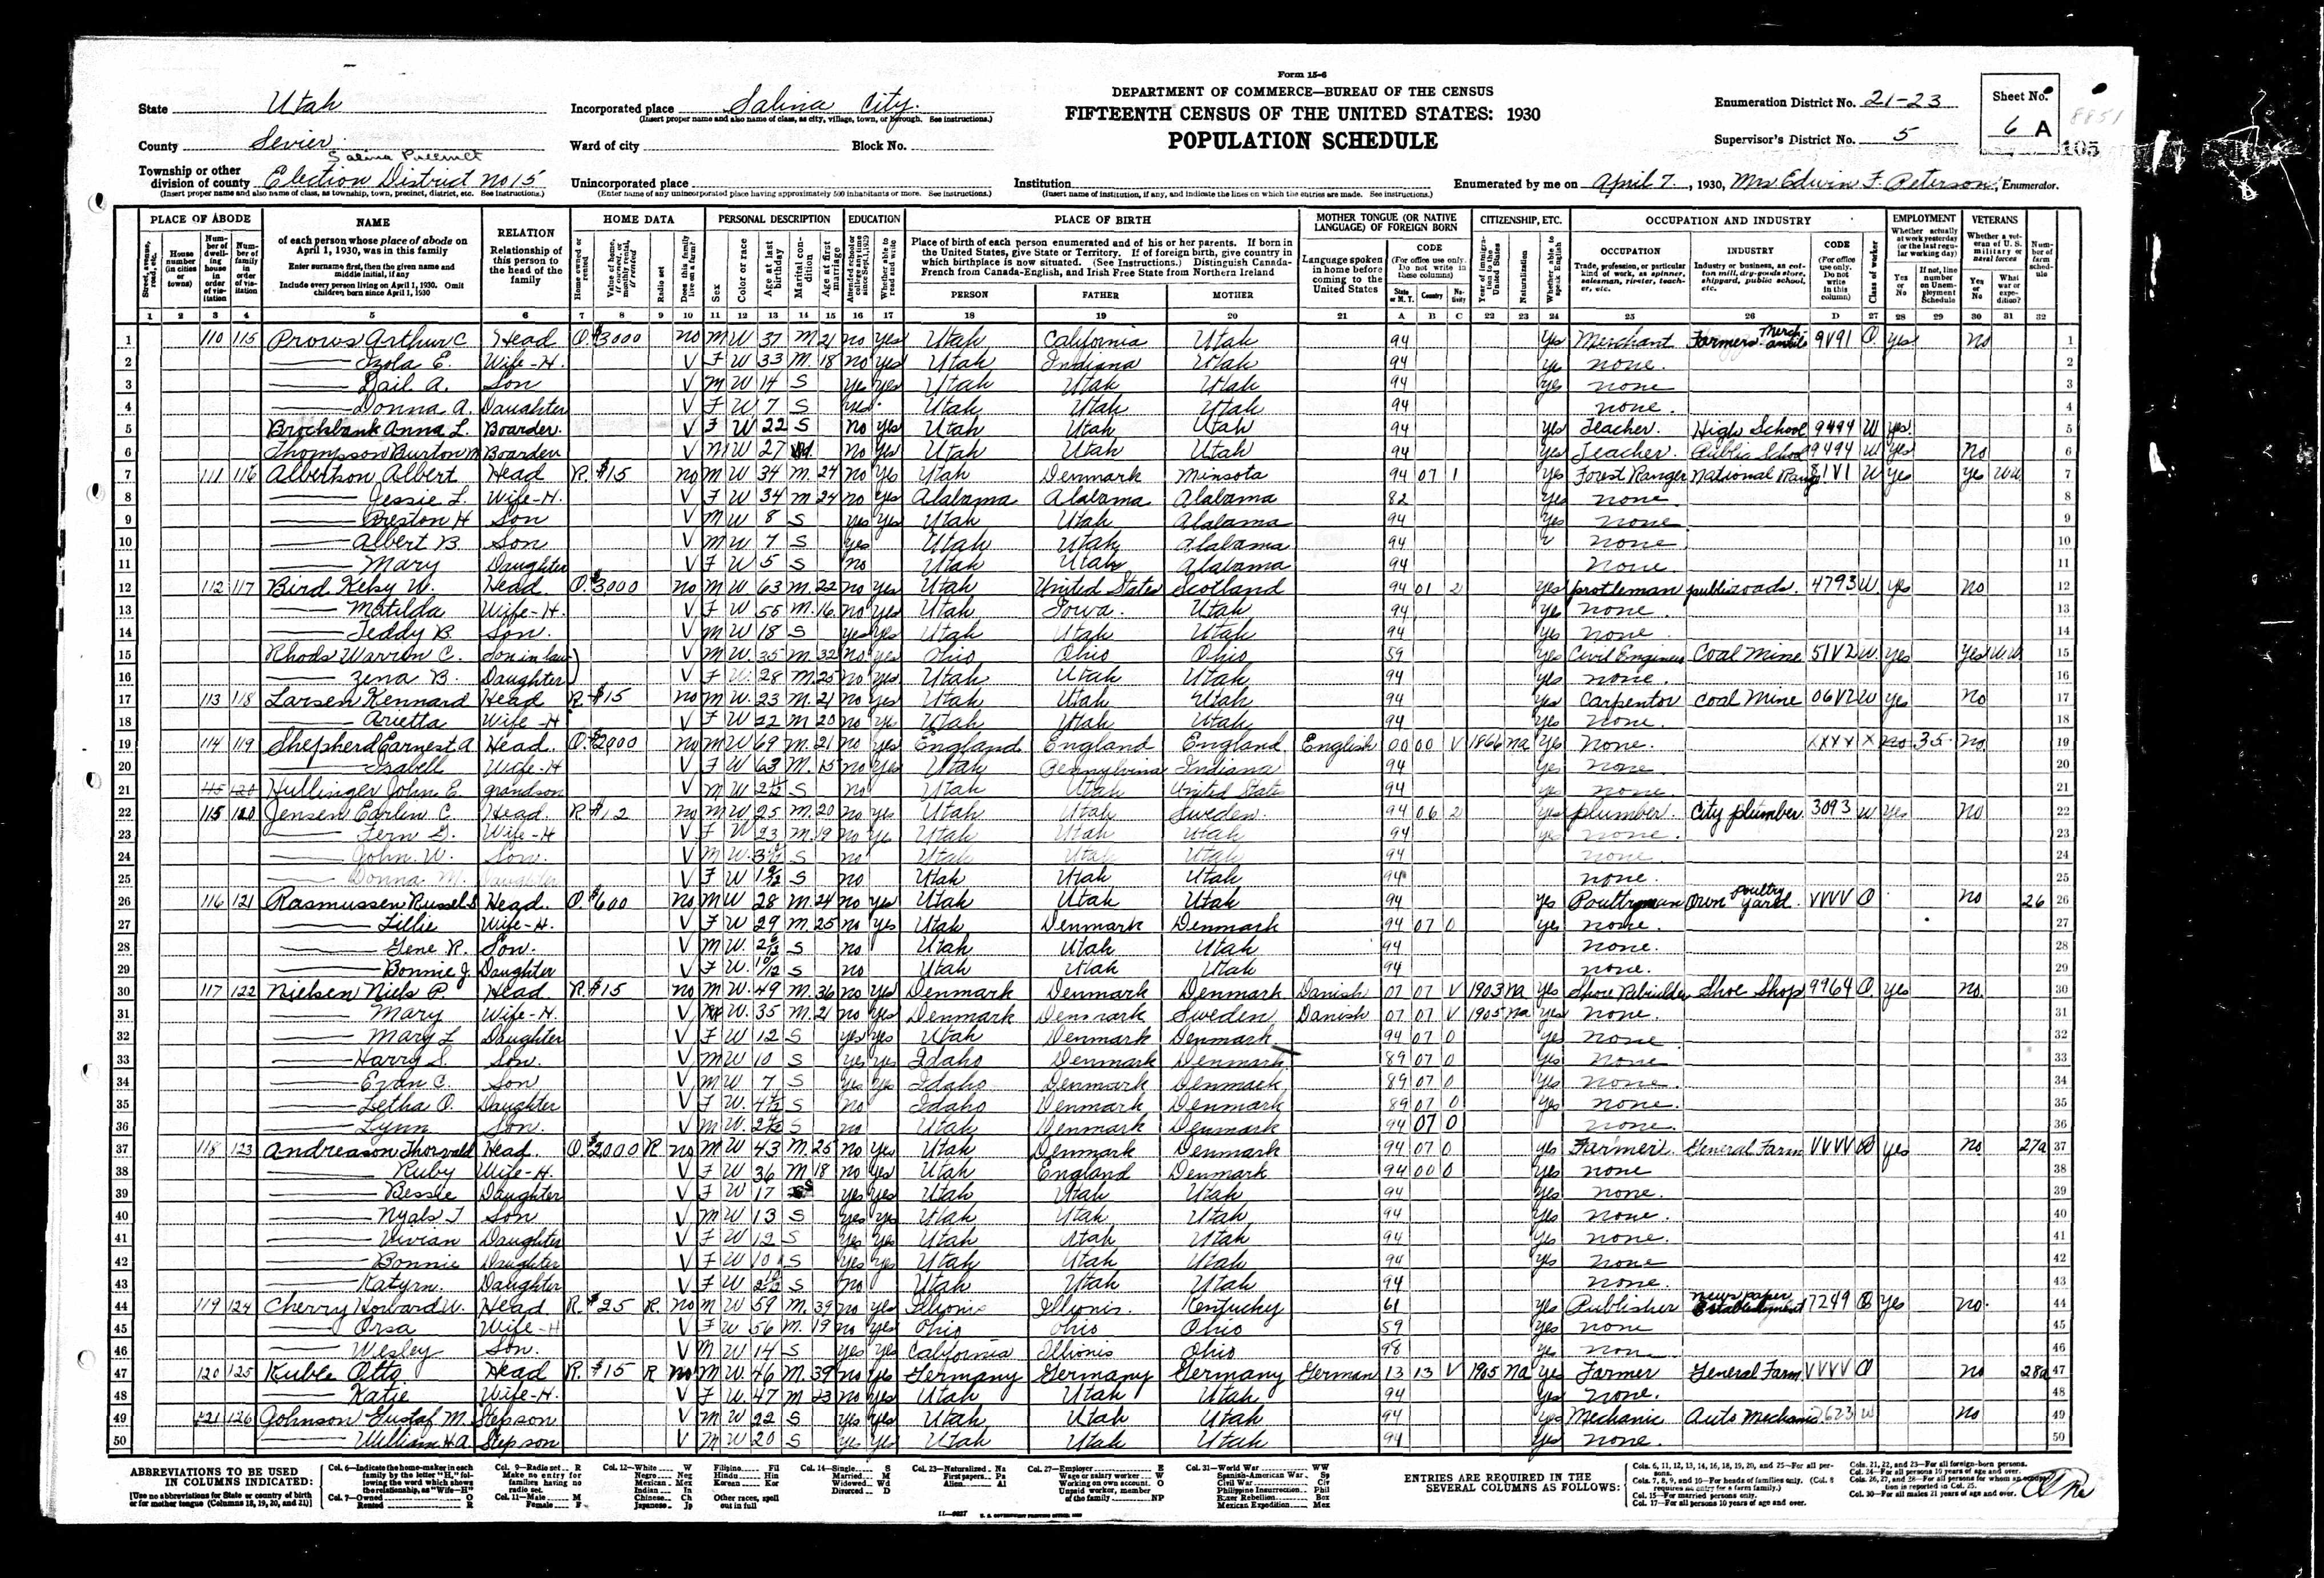 Form 15-6
State Utah
Incorporated place Salina City.
(Insert proper name and also name of class, as city, village, town, or borough. See instructions.)
DEPARTMENT OF COMMERCE—BUREAU OF THE CENSUS
FIFTEENTH CENSUS OF THE UNITED STATES: 1930
POPULATION SCHEDULE
Enumeration District No. 21-23
Supervisor's District No. 5
Sheet No.
6 A
8851
105
County Sevier
Ward of city Block No.
Salina Precinct
Township or other division of county Election District No 15
(Insert proper name and also name of class, as township, town, precinct, district, etc. See instructions.)
Unincorporated place
(Enter name of any unincorporated place having approximately 500 inhabitants or more. See instructions.)
Institution
(Insert name of institution, if any, and indicate the lines on which the entries are made. See instructions.)
Enumerated by me on April 7, 1930, Mrs Edwin F. Peterson, Enumerator.
PLACE OF ABODE NAME RELATION HOME DATA PERSONAL DESCRIPTION EDUCATION PLACE OF BIRTH MOTHER TONGUE (OR NATIVE LANGUAGE) OF FOREIGN BORN CITIZENSHIP, ETC. OCCUPATION AND INDUSTRY EMPLOYMENT VETERANS
1 2 3 4 5 6 7 8 9 10 11 12 13 14 15 16 17 18 19 20 21 A B C 22 23 24 25 26 D 27 28 29 30 31 32
1 110 115 Prows Arthur C Head O $3000 no M W 37 M 21 no yes Utah California Utah 94 yes Merchant Farmers Mercantile 9V91 O yes no 1
2 Izola E. Wife-H. V F W 33 M. 18 no yes Utah Indiana Utah 94 ye none. 2
3 Dail A. Son V M W 14 S yes yes Utah Utah Utah 94 yes none 3
4 Donna A. Daughter V F W 7 S yes Utah Utah Utah 94 none. 4
5 Brochbank Anna L. Boarder. V F W 22 S no yes Utah Utah Utah 94 yes Teacher. High School 9494 W yes 5
6 Thompson Burton M Boarder V M W 27 no yes Utah Utah Utah 94 yes Teacher. Public School 9494 W yes no 6
7 111 116 Albertson Albert Head R. $15 no M W 34 M. 24 no yes Utah Denmark Minsota 94 07 1 yes Forest Ranger National Range 81V1 W yes yes WW 7
8 Jessie L. Wife-H. V F W 34 M 24 no yes Alabama Alabama Alabama 82 yes none 8
9 Preston H Son V M W 8 S yes yes Utah Utah Alabama 94 yes none 9
10 Albert B Son V M W 7 S yes Utah Utah Alabama 94 none 10
11 Mary Daughter V F W 5 S no Utah Utah Alabama 94 none. 11
12 112 117 Bird Kelsy W. Head O. $3000 no M W 63 M. 22 no yes Utah United States Scotland 94 01 2 yes public roads. 4793 W yes no 12
13 Matilda Wife-H. V F W 55 M. 16 no yes Utah Iowa. Utah 94 yes none. 13
14 Teddy B. Son. V M W 18 S yes yes Utah Utah Utah 94 yes none 14
15 Rhods Warren C. Son in law V M W. 35 M. 32 no yes Ohio Ohio Ohio 59 yes Civil Engineer Coal Mine 51V2 W. yes yes WW 15
16 Zena B. Daughter V F W 28 M. 25 no yes Utah Utah Utah 94 yes none. 16
17 113 118 Larsen Kennard Head R. $15 no M W. 23 M. 21 no yes Utah Utah Utah 94 yes Carpentor Coal Mine 06V2 W yes no 17
18 Arietta Wife-H V F W 22 M 20 no yes Utah Utah Utah 94 yes none. 18
19 114 119 Shepherd Earnest A Head. O. $2000 no M W 69 M. 21 no yes England England England English 00 00 V 1866 na yes none. XXXX X no 35 no 19
20 Isabell Wife-H V F W 63 M. 15 no yes Utah Pennsylvina Indiana 94 yes none. 20
21 115 120 Hullinger John E. grandson V M W S no Utah Utah United States 94 none. 21
22 115 120 Jensen Earlin C. Head. R $12 no M W 25 M. 20 no yes Utah Utah Sweden. 94 06 2 yes plumber. City plumber. 3093 W yes no 22
23 Fern G. Wife-H V F W 23 M. 19 no yes Utah Utah Utah 94 yes none. 23
24 John. W. Son. V M W. S no Utah Utah Utah 94 none. 24
25 Donna M. Daughter V F W S no Utah Utah Utah 94 none. 25
26 116 121 Rasmussen Russel S Head. O. $600 no M W 28 M. 24 no yes Utah Utah Utah 94 yes Poultryman Own Poultry Yard. VVVV O no 26 26
27 Lillie Wife-H. V F W 29 M. 25 no yes Utah Denmark Denmark 94 07 0 yes none. 27
28 Gene R. Son. V M W. S no Utah Utah Utah 94 none. 28
29 Bonnie J. Daughter V F W. 10/12 S no Utah Utah Utah 94 none. 29
30 117 122 Nielsen Niels P. Head R. $15 no M W. 49 M. 36 no yes Denmark Denmark Denmark Danish 07 07 V 1903 na yes Shoe Rebuilder Shoe Shop 9964 O. yes no. 30
31 Mary Wife-H. V W. 35 M. 21 no yes Denmark Denmark Sweden Danish 07 07 V 1905 na yes none. 31
32 Mary L Daughter V F W 12 S yes yes Utah Denmark Denmark 94 07 0 yes none 32
33 Harry S. Son. V M W 10 S yes yes Idaho Denmark Denmark 89 07 0 yes none 33
34 Evan C. Son V M W 7 S yes yes Idaho Denmark Denmark 89 07 0 yes none. 34
35 Letha O. Daughter V F W. S no Idaho Denmark Denmark 89 07 0 yes none. 35
36 Lynn Son. V M W. S no Utah Denmark Denmark 94 07 0 none. 36
37 118 123 Andreason Thorvald Head. O. $2000 R no M W 43 M. 25 no yes Utah Denmark Denmark 94 07 0 yes Farmer. General Farm VVVV yes no 27a 37
38 Ruby Wife-H. V F W 36 M 18 no yes Utah England Denmark 94 00 0 yes none 38
39 Bessie Daughter V F W 17 S yes yes Utah Utah Utah 94 yes none. 39
40 Nyals T Son V M W 13 S yes yes Utah Utah Utah 94 yes none. 40
41 Vivian Daughter V F W 12 S yes yes Utah Utah Utah 94 yes none. 41
42 Bonnie Daughter V F W 10 S yes yes Utah Utah Utah 94 yes none 42
43 Katyrn. Daughter V F W S no Utah Utah Utah 94 none. 43
44 119 124 Cherry Howard W. Head R. $25 R. no M W 59 M. 39 no yes Illionis Illionis. Kentucky 61 yes Publisher newspaper Establishment 7249 yes no. 44
45 Orsa Wife-H V F W 56 M. 19 no yes Ohio Ohio Ohio 59 yes none 45
46 Wesley Son. V M W 14 S yes yes California Illionis Ohio 98 yes none 46
47 120 125 Kuble Otto Head R. $15 R no M W. 46 M. 39 no yes Germany Germany Germany German 13 13 V 1905 na yes Farmer General Farm VVVV O no 28a 47
48 Katie Wife-H. V F W. 47 M 23 no yes Utah Utah Utah 94 yes none. 48
49 121 126 Johnson Gustaf M. Stepson V M W 22 S yes yes Utah Utah Utah 94 yes Mechanic Auto Mechanic W no 49
50 William H A. Stepson V M W 20 S yes yes Utah Utah Utah 94 yes none. 50
ABBREVIATIONS TO BE USED IN COLUMNS INDICATED:
[Use no abbreviations for State or country of birth or for mother tongue (Columns 18, 19, 20, and 21)]
ENTRIES ARE REQUIRED IN THE SEVERAL COLUMNS AS FOLLOWS: